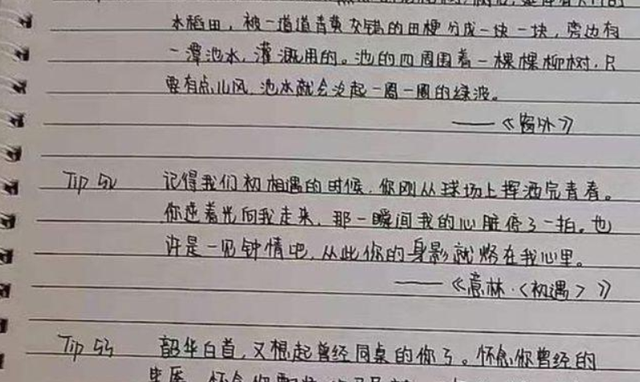 水稻田，被一道道青黄交错的田梗分成一块一块，旁边有
一潭池水，灌溉用的。池的四周围着一棵棵柳树，只
要有点儿风，池水就会泛起一圈一圈的绿波。
——《窗外》
Tip 52 记得我们初相遇的时候，你刚从球场上挥洒完青春。
你逆着光向我走来，那一瞬间我的心脏停了一拍。也
许是一见钟情吧，从此你的身影就烙在我心里。
——《意林·<初遇>》
Tip 53 韶华白首，又想起曾经同桌的你了。怀念你曾经的
怀念你